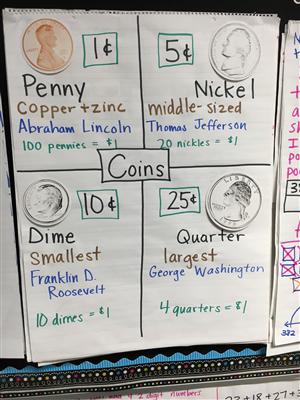 1¢
Penny
Copper + zinc
Abraham Lincoln
100 pennies = $1
5¢
Nickel
middle-sized
Thomas Jefferson
20 nickles = $1
Coins
10¢
Dime
Smallest
Franklin D.
Roosevelt
10 dimes = $1
25¢
LIBERTY
Quarter
largest
George Washington
4 quarters = $1
4 2 digit numbers